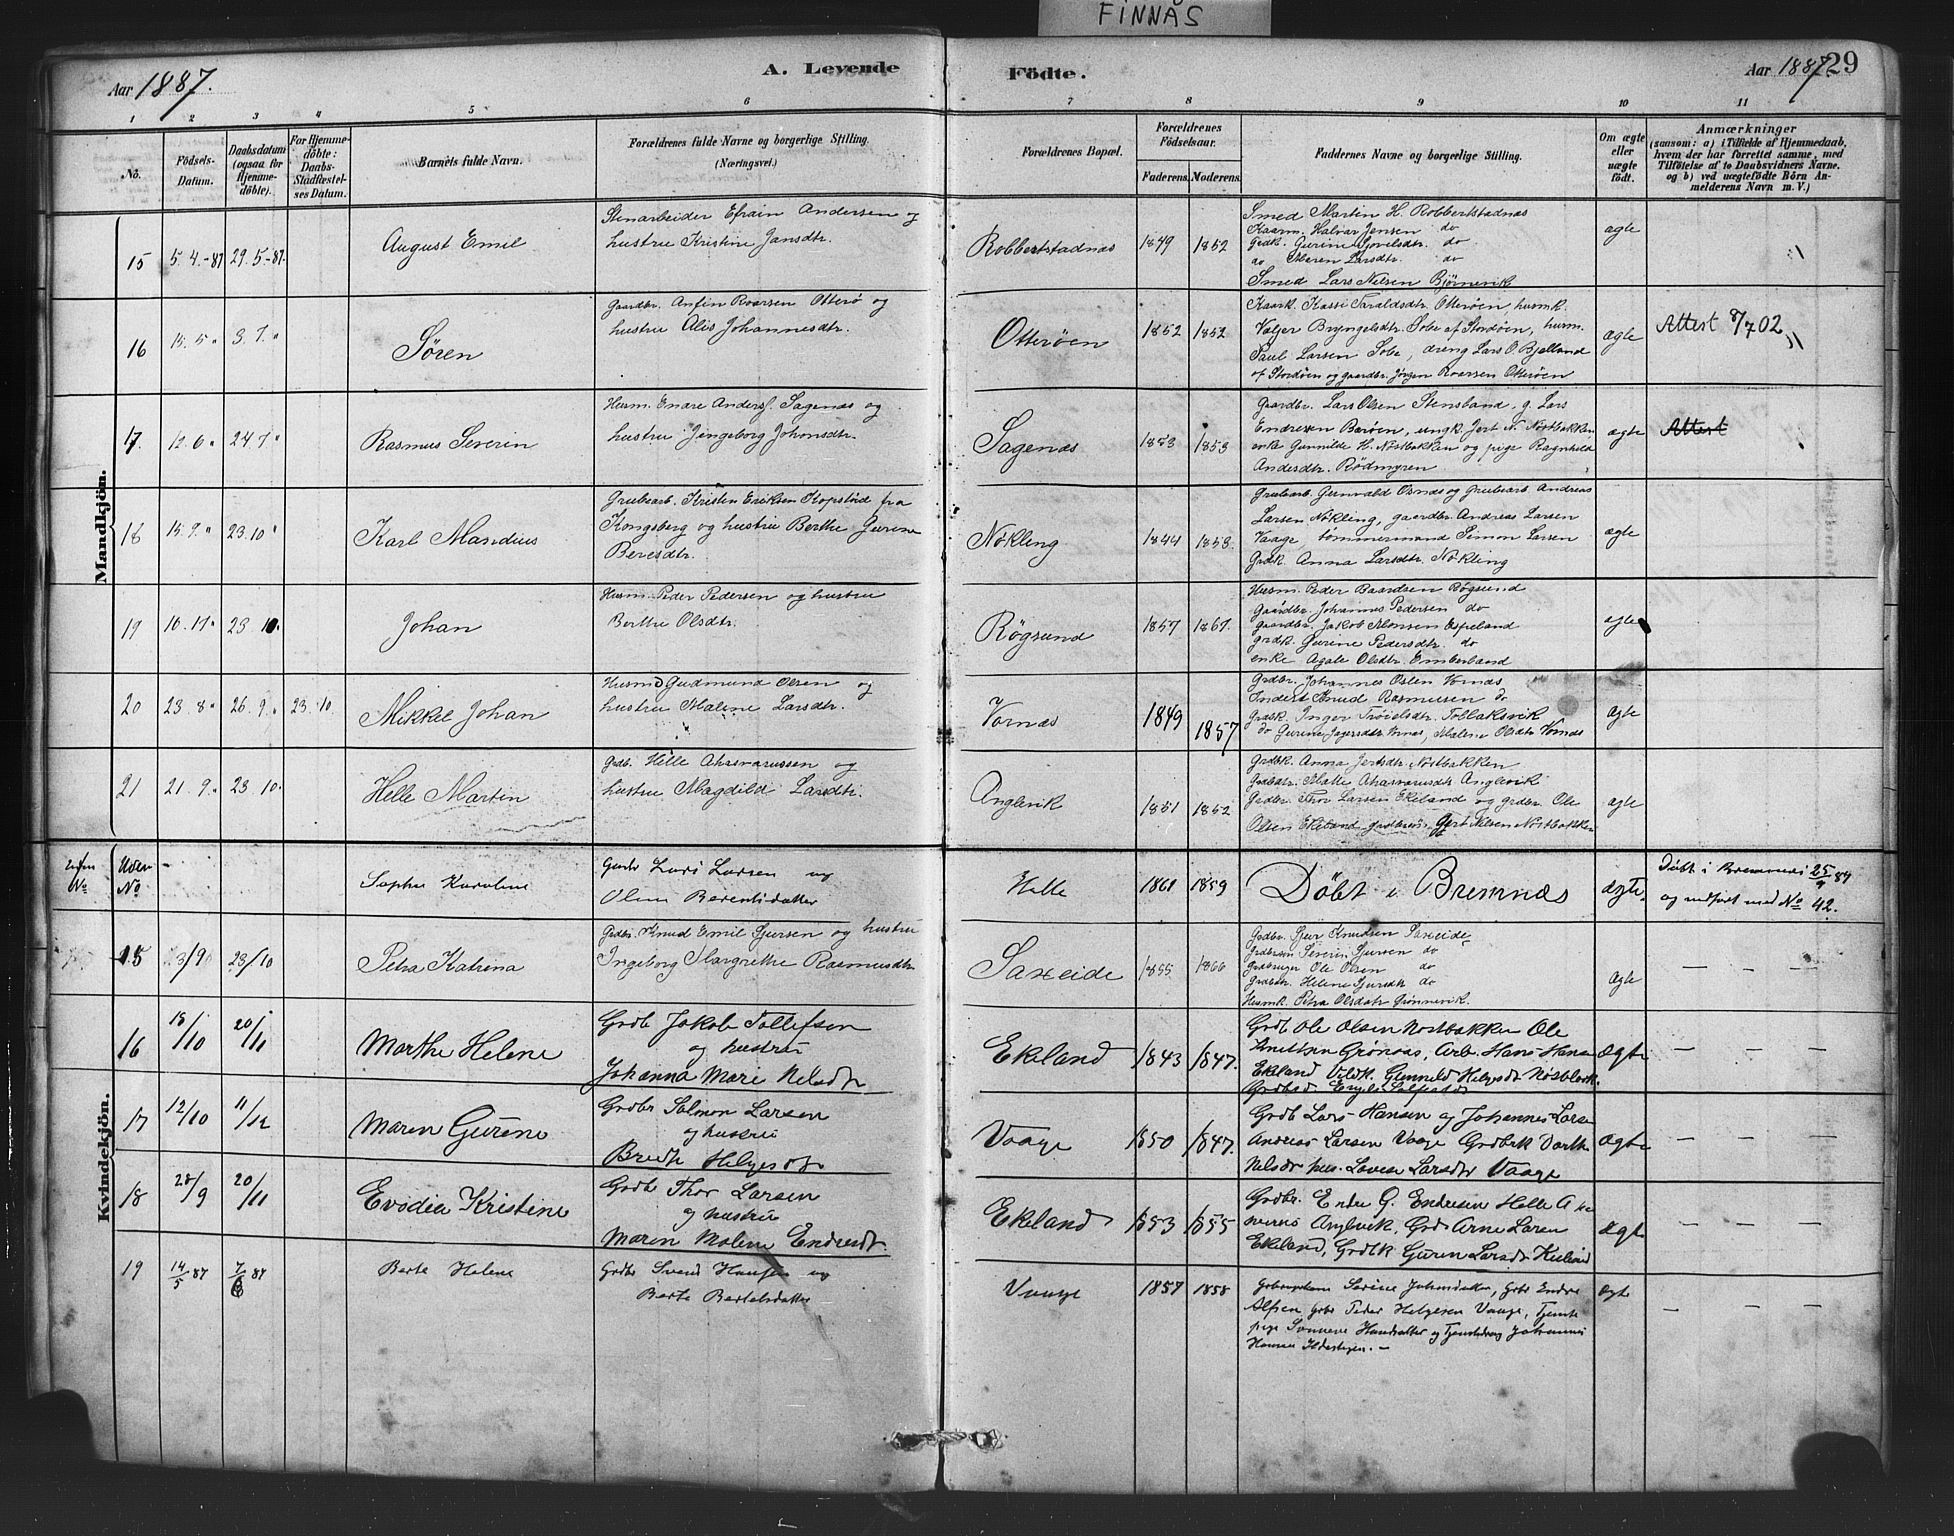 FINNÅS
Aar 1887.
A. Levende Födte.
Aar 1887. 29
1 2 3 4 5 6 7 8 9 10 11
No. Födsels-Datum. Daabsdatum (ogsaa for Hjemmedöbte). For Hjemmedöbte: Daabs-Stadfæstelses Datum. Barnets fulde Navn. Forældrenes fulde Navne og borgerlige Stilling. (Næringsvei.) Forældrenes Bopæl. Forældrenes Födselsaar. Faderens. Moderens. Faddernes Navne og borgerlige Stilling. Om ægte eller uægte födt. Anmærkninger (saasom: a) i Tilfælde af Hjemmedaab, hvem der har forrettet samme, med Tilföielse af to Daabsvidners Navne. og b) ved uægtefödte Börn Anmelderens Navn m. V.)
Mandkjön.
15 5.4.-87 29.5.-87. August Emil
Stenarbeider Efraim Andersen og
hustru Kristine Jansdtr.
Robbertstadnas 1849 1852
Smed Martin H. Robbertstadnas
Kaarm. Halvar Jensen do
Grdk. Gurine do
do Maren Larsdtr. do
Smed Lars Nilsen Bjørnevik
ægte
16 15.5 " 3.7. " Søren
Gaardbr. Anfin Roarsen Otterø og
hustru Alis Johannesdtr.
Otterøen 1852 1852
Kaark. Kassi Taraldsdtr. Otterøen, husmk.
Valjer Bryngelsdtr. Sobe af Stordøen, husm.
Paul Larsen Sobe, dreng Lars O. Bjelland
af Stordøen og gaardbr. Jørgen Roarsen Otterøen
ægte Attest 8/7 02
17 12.6 " 24.7 " Rasmus Severin
Husm. Enare Anders. Sagenas og
hustru Jngeborg Johansdtr.
Sagenas 1853 1853
Gaardbr. Lars Olsen Stensland, g. Lars
Endresen Barøen, ungk. Jert N. Nostbakken
enke Gunnilde H. Nostbakken og pige Ragnhild
Andersdtr. Rødmyren
ægte Attest
18 15.9. " 23.10 " Karl Mandius
Grubearb. Kristen Eriksen Kopstad fra
Kongsberg og hustru Berthe Gurine
Beresdtr.
Nökling 1844 1853.
Grubearb. Gunvald Osnas og Grubearb. Andreas
Larsen Nökling, gaardbr. Andreas Larsen
Vaage, tømmermand Simon Larsen
Grdk. Anna Larsdtr. Nökling
ægte
19 23 10. Johan
Husm. Peder Pedersen og hustru
Berthe Olsdtr.
Røgsund 1857 1867.
Husm. Peder Baardsen Røgsund
Gaardbr. Johannes Pedersen do
gaardbr. Jakob Monsen Espeland
grdk. Gurine Pedersdtr. do
enke Agate Olsdtr. Emberland
ægte
20 23.8 " 26.9. " 23.10 Mikkel Johan
Husmd Gudmund Olsen og
hustru Malene Larsdtr.
Vornas 1849 1857
Grdbr. Johannes Oslen Vornas
Inderst Knud Rasmusen do
Grdk. Inger Toblaksvik
do Gurine Vornas, Malene Olsdtr Vornas
ægte
21 21.9. " 23.10. Helle Martin
Grdb. Helle Ahasvarussen og
hustru Magdild Larsdtr.
Anglevik 1851 1852
Grdbk. Anna Jertsdtr. Nostbakken
Grdbdtr. Malle Ahasvarusdtr Anglevik
Grdbr. Thor Larsen Ekeland og grdbr. Ole
Olsen Ekeland Gert Nilsen Nostbakken
ægte
Uden No Uden No Sophie Karoline
Gardb Lars Larsen og
Oline Berentsdatter
Helle 1861 1859 Döbt i Bremnæs ægte.
Döbt i Bremnæs 25/9 87
og indført med No 42.
Kvindekjön.
15 3/9 23/10 Petra Katrina
Grdbr. Knud Emil Sjursen og hustru
Ingeborg Margrethe Rasmusdtr
Saxeide 1855 1866
Grdbr. Sjur Knudsen Saxeide
Severin Sjursen do
Ole Olsen do
Helene Sjursdtr do
Husmk. Petra Olsdatr Grønnevik.
ægte — — —
16 18/10 20/11 Marthe Helene
Grdb Jakob Tollefsen
og hustru
Johanna Marie Nelsdtr
Ekeland 1843 1847.
Grdb Ole Olsen Nostbakken Ole
Knutsen Grönaas, Arb. Hans Hansen
Ekeland Gunneld Helgesdt Nostbakk.
ægte — — —
17 12/10 11/12 Maren Gurine
Grdbr Salmon Larsen
og hustru
Helgesdtr
Vaage 1850 1847.
Grdb Lars Hansen og Johannes Larse
Andreas Larsen Vaage
Nelsdtr Lovise Larsdtr Vaage
ægte — — —
18 28/9 20/11 Evodia Kristine
Grdb Thor Larsen
og hustru
Maren Malene Endresdt
Ekeland 1853 1855
Grdbr. Endre G. Endresen Helle
Anglevik, Grd Arne Larsen
Ekeland, Grdbk Guren Larsdt
ægte — — —
19 14/5 87 7/6 87 Berte Helene
Grdbr Svend Hansen og
Berte Bertelsdatter
Vaage 1857 1858
Serine Johansdatter, Grbr Endre
Alfsen Grbr Peder Helgesen Vaage, Tjeneste
pige Sonneve Hansdatter og Tjenstedreng Johannes
Hansen
ægte — — —